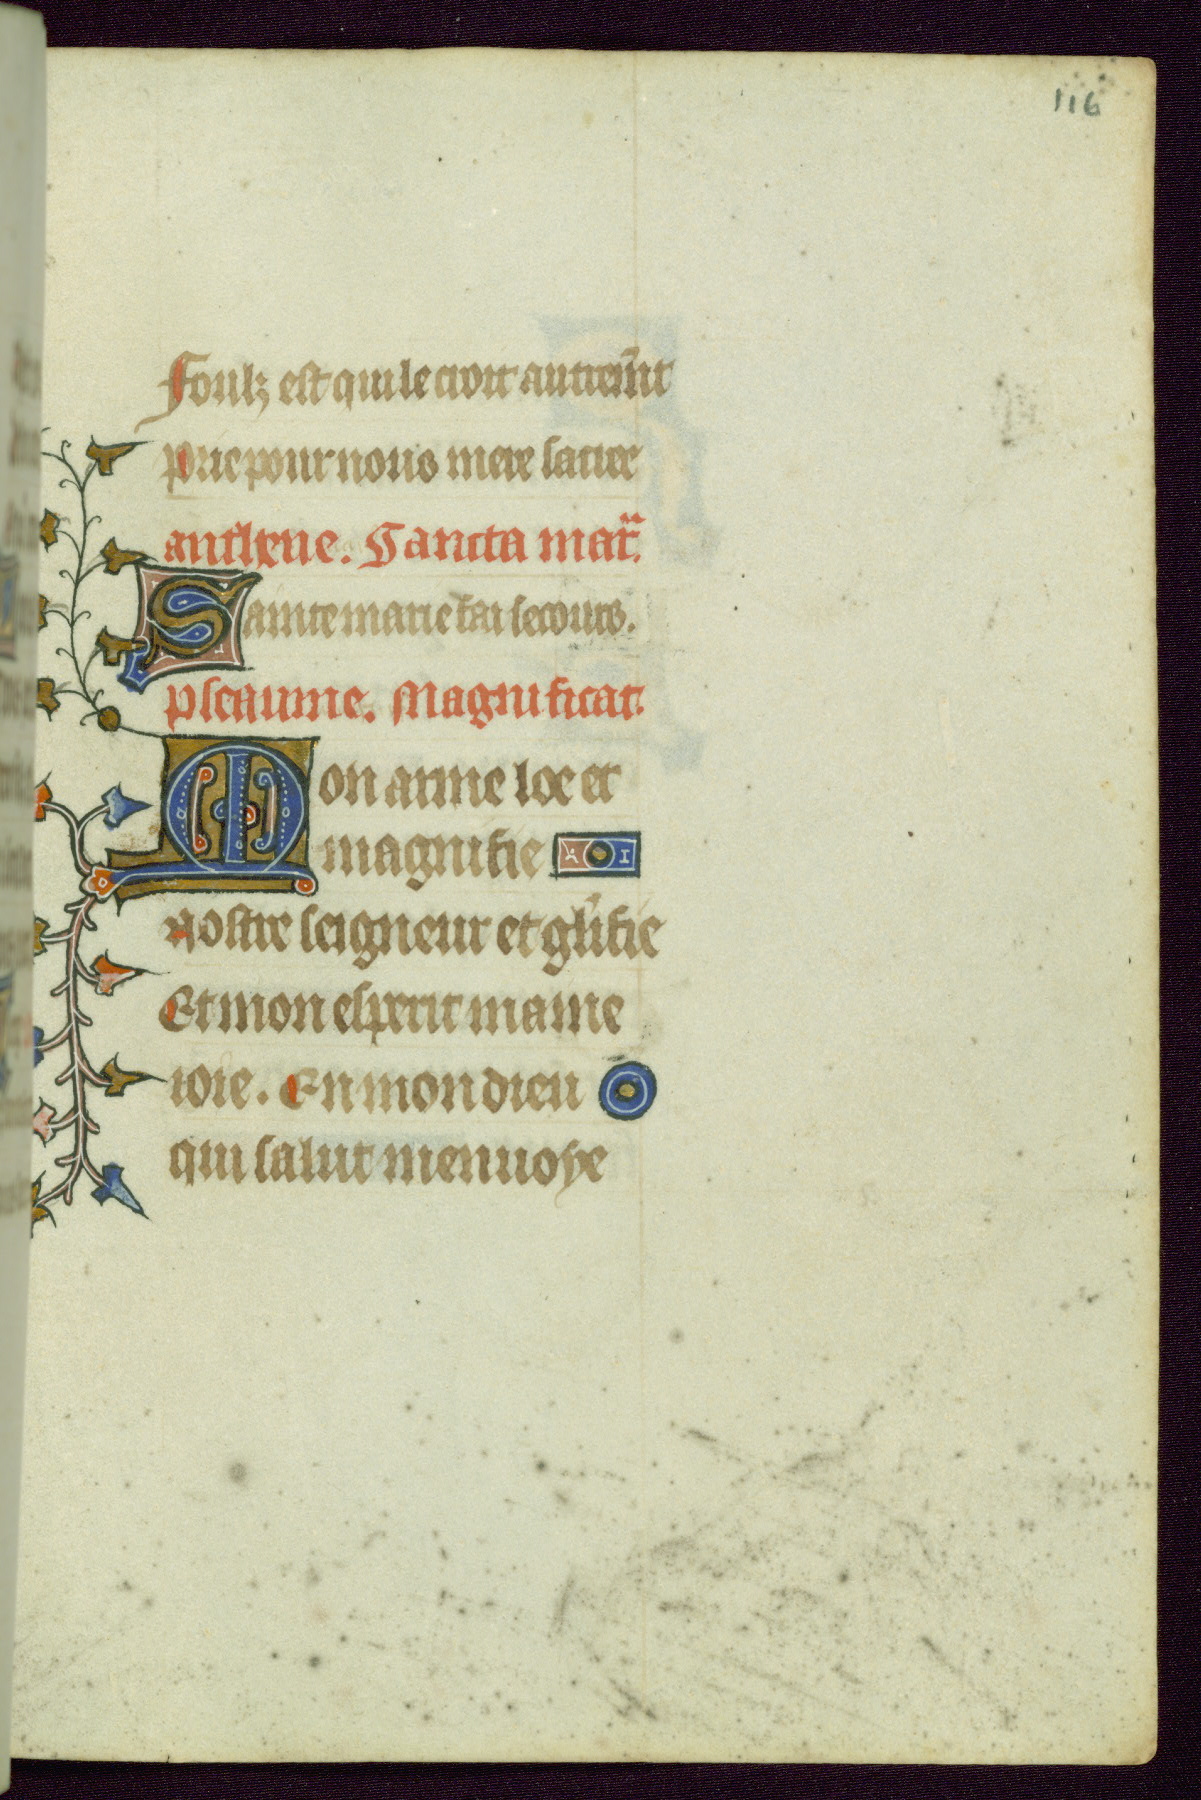 116
Foulz est qui le croit autrem̄t
Prie pour nous mere sacree
anthene. Sancta mar̃.
Sainte marie fai secours.
Pseaume. Magnificat.
Mon arme loe et
magnifie
Nostre seigneur et glifie
Et mon esperit maine
ioie. En mon dieu
qui salut menuoye